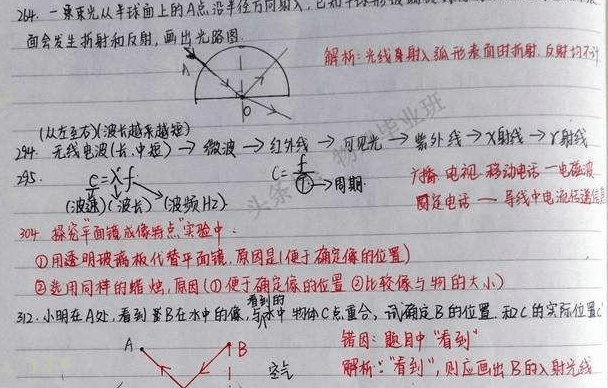 264. 一束束光从半球面上的A点沿半径方向射入,
面会发生折射和反射,画出光路图.
解析:光线身射入弧形表面时折射.反射均不计
A
O
(从左至右)(波长越来越短)
294. 无线电波(长.中短) → 微波 → 红外线 → 可见光 → 紫外线 → X射线 → γ射线
295. c=λf
(波速)(波长) (波频Hz)
T → 周期.
广播.电视.移动电话—电磁波
固定电话 — 导线中电流传递信息
304. 探究"平面镜成像特点"实验中:
①用透明玻璃板代替平面镜.原因是(便于确定像的位置)
②选用同样的蜡烛,原因(①便于确定像的位置 ②比较像与物的大小)
看到的
312. 小明在A处,看到星B在水中的像,与水中物体C点重合,试确定B的位置.和C的实际位置C'
错因:题目中"看到"
A
B
空气
解析:"看到",则应画出B的入射光线